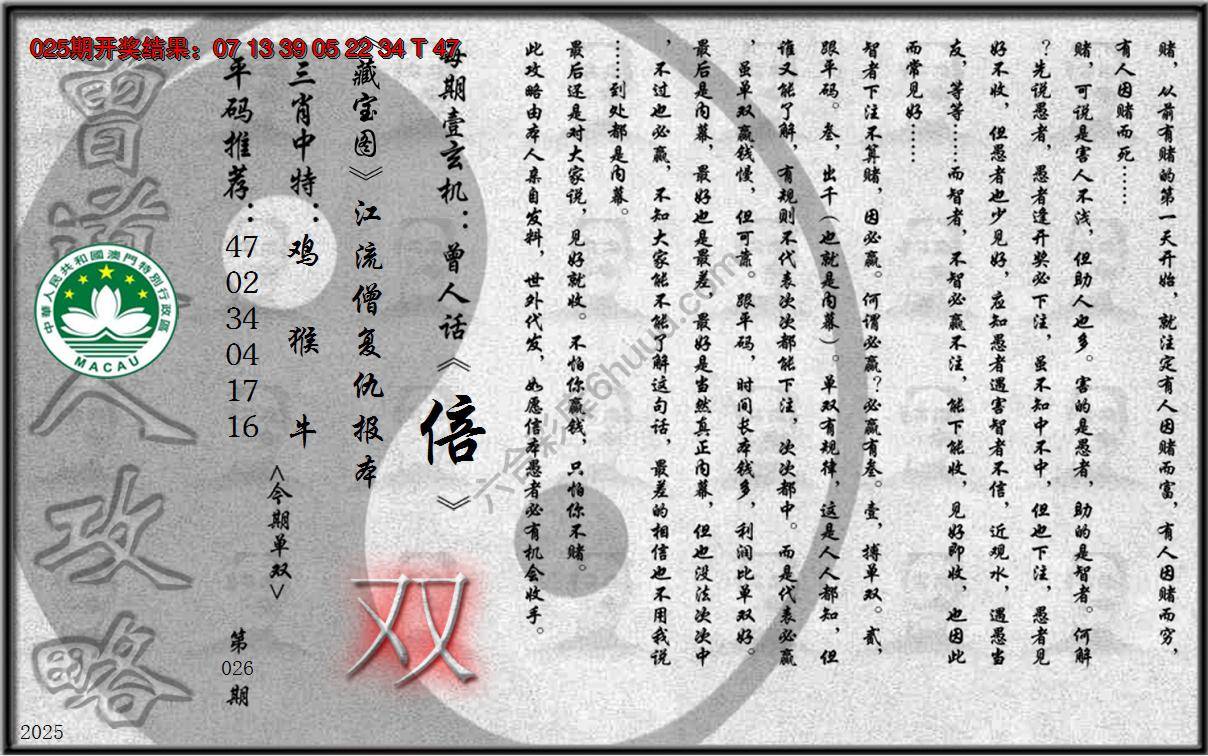 025期开奖结果：07 13 39 05 22 34 T 47
赌，从前有赌的第一天开始，就注定有人因赌而富，有人因赌而穷，
有人因赌而死……
赌，可说是害人不浅，但助人也多。害的是愚者，助的是智者。何解
？先说愚者，愚者逢开奖必下注，虽不知中不中，但也下注，愚者见
好不收，但愚者也少见好，应知愚者遇害智者不信，近观水，遇愚当
友，等等……而智者，不智必赢不注，能下能收，见好即收，也因此
而常见好……
智者下注不算赌，因必赢。何谓必赢？必赢有叁。壹，搏单双。贰，
跟平码。叁，出千（也就是内幕）。单双有规律，这是人人都知，但
谁又能了解，有规则不代表次次都能下注，次次都中。而是代表必赢
，虽单双赢钱慢，但可靠。跟平码，时间长本钱多，利润比单双好。
最后是内幕，最好也是最差，最好是当然真正内幕，但也没法次次中
，不过也必赢，不知大家能不能了解这句话，最差的相信也不用我说
……到处都是内幕。
最后还是对大家说，见好就收。不怕你赢钱，只怕你不赌。
此攻略由本人亲自发料，世外代发，如愿信本愚者必有机会收手。
每期壹玄机：曾人话《倍》
《藏宝图》江流僧复仇报本
双
三肖中特：鸡 猴 牛
<今期单双>
平码推荐：47 02 34 04 17 16
第026期
曾道人攻略
中華人民共和國澳門特別行政區
MACAU
六合彩库6huuu.com
2025